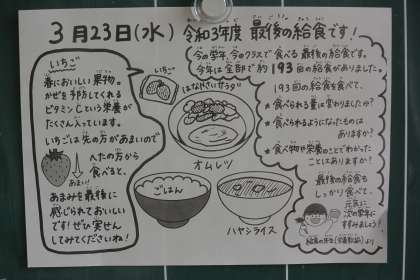 3月23日(水) 令和3年度 最後の給食です！
いちご
春においしい果物。
かぜを予防してくれる
ビタミンCという栄養が
たくさん入っています。
いちごは先の方があまいので
へたの方から
食べると、
あまい
あまみを最後に
感じられておいしい
です！ぜひ実せん
してみてくださいね！
いちご
はなやさいサラダ
オムレツ
ごはん
ハヤシライス
今の学年、今のクラスで食べる最後の給食です。
今年は全部で約193回の給食がありました。
193回の給食を食べて、
★食べられる量は変わりましたか？
★食べられるようになったものは
ありますか？
★食べ物や栄養のことでわかった
ことはありますか？
最後の給食も
しっかり食べて、
元気に
次の学年に
すすみましょう！
給食の先生
より